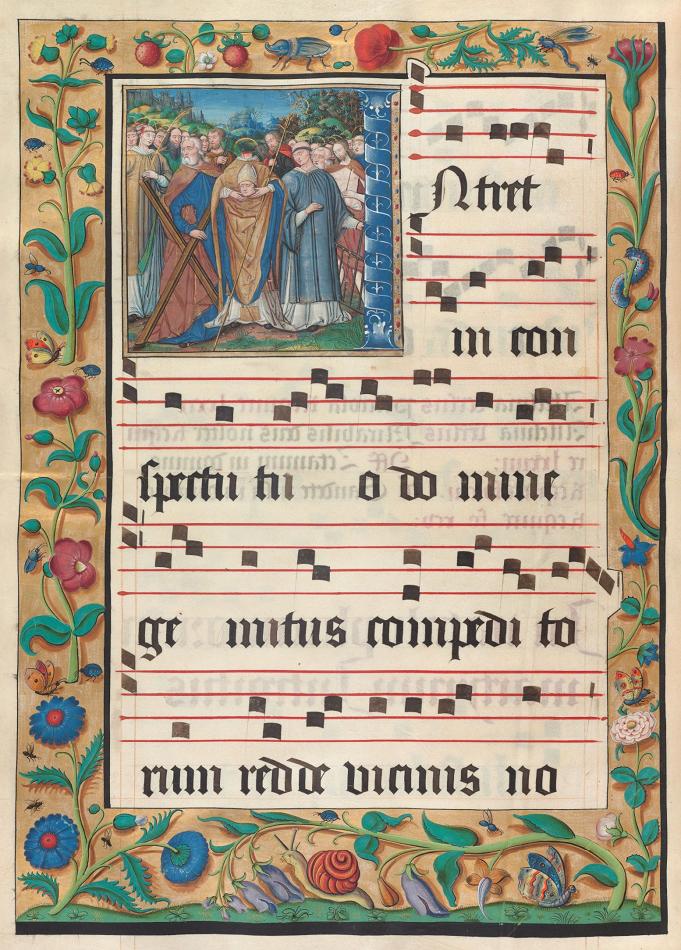 INtret
in con
spectu tu o do mine
ge mitus compedi to
rum redde vicinis no